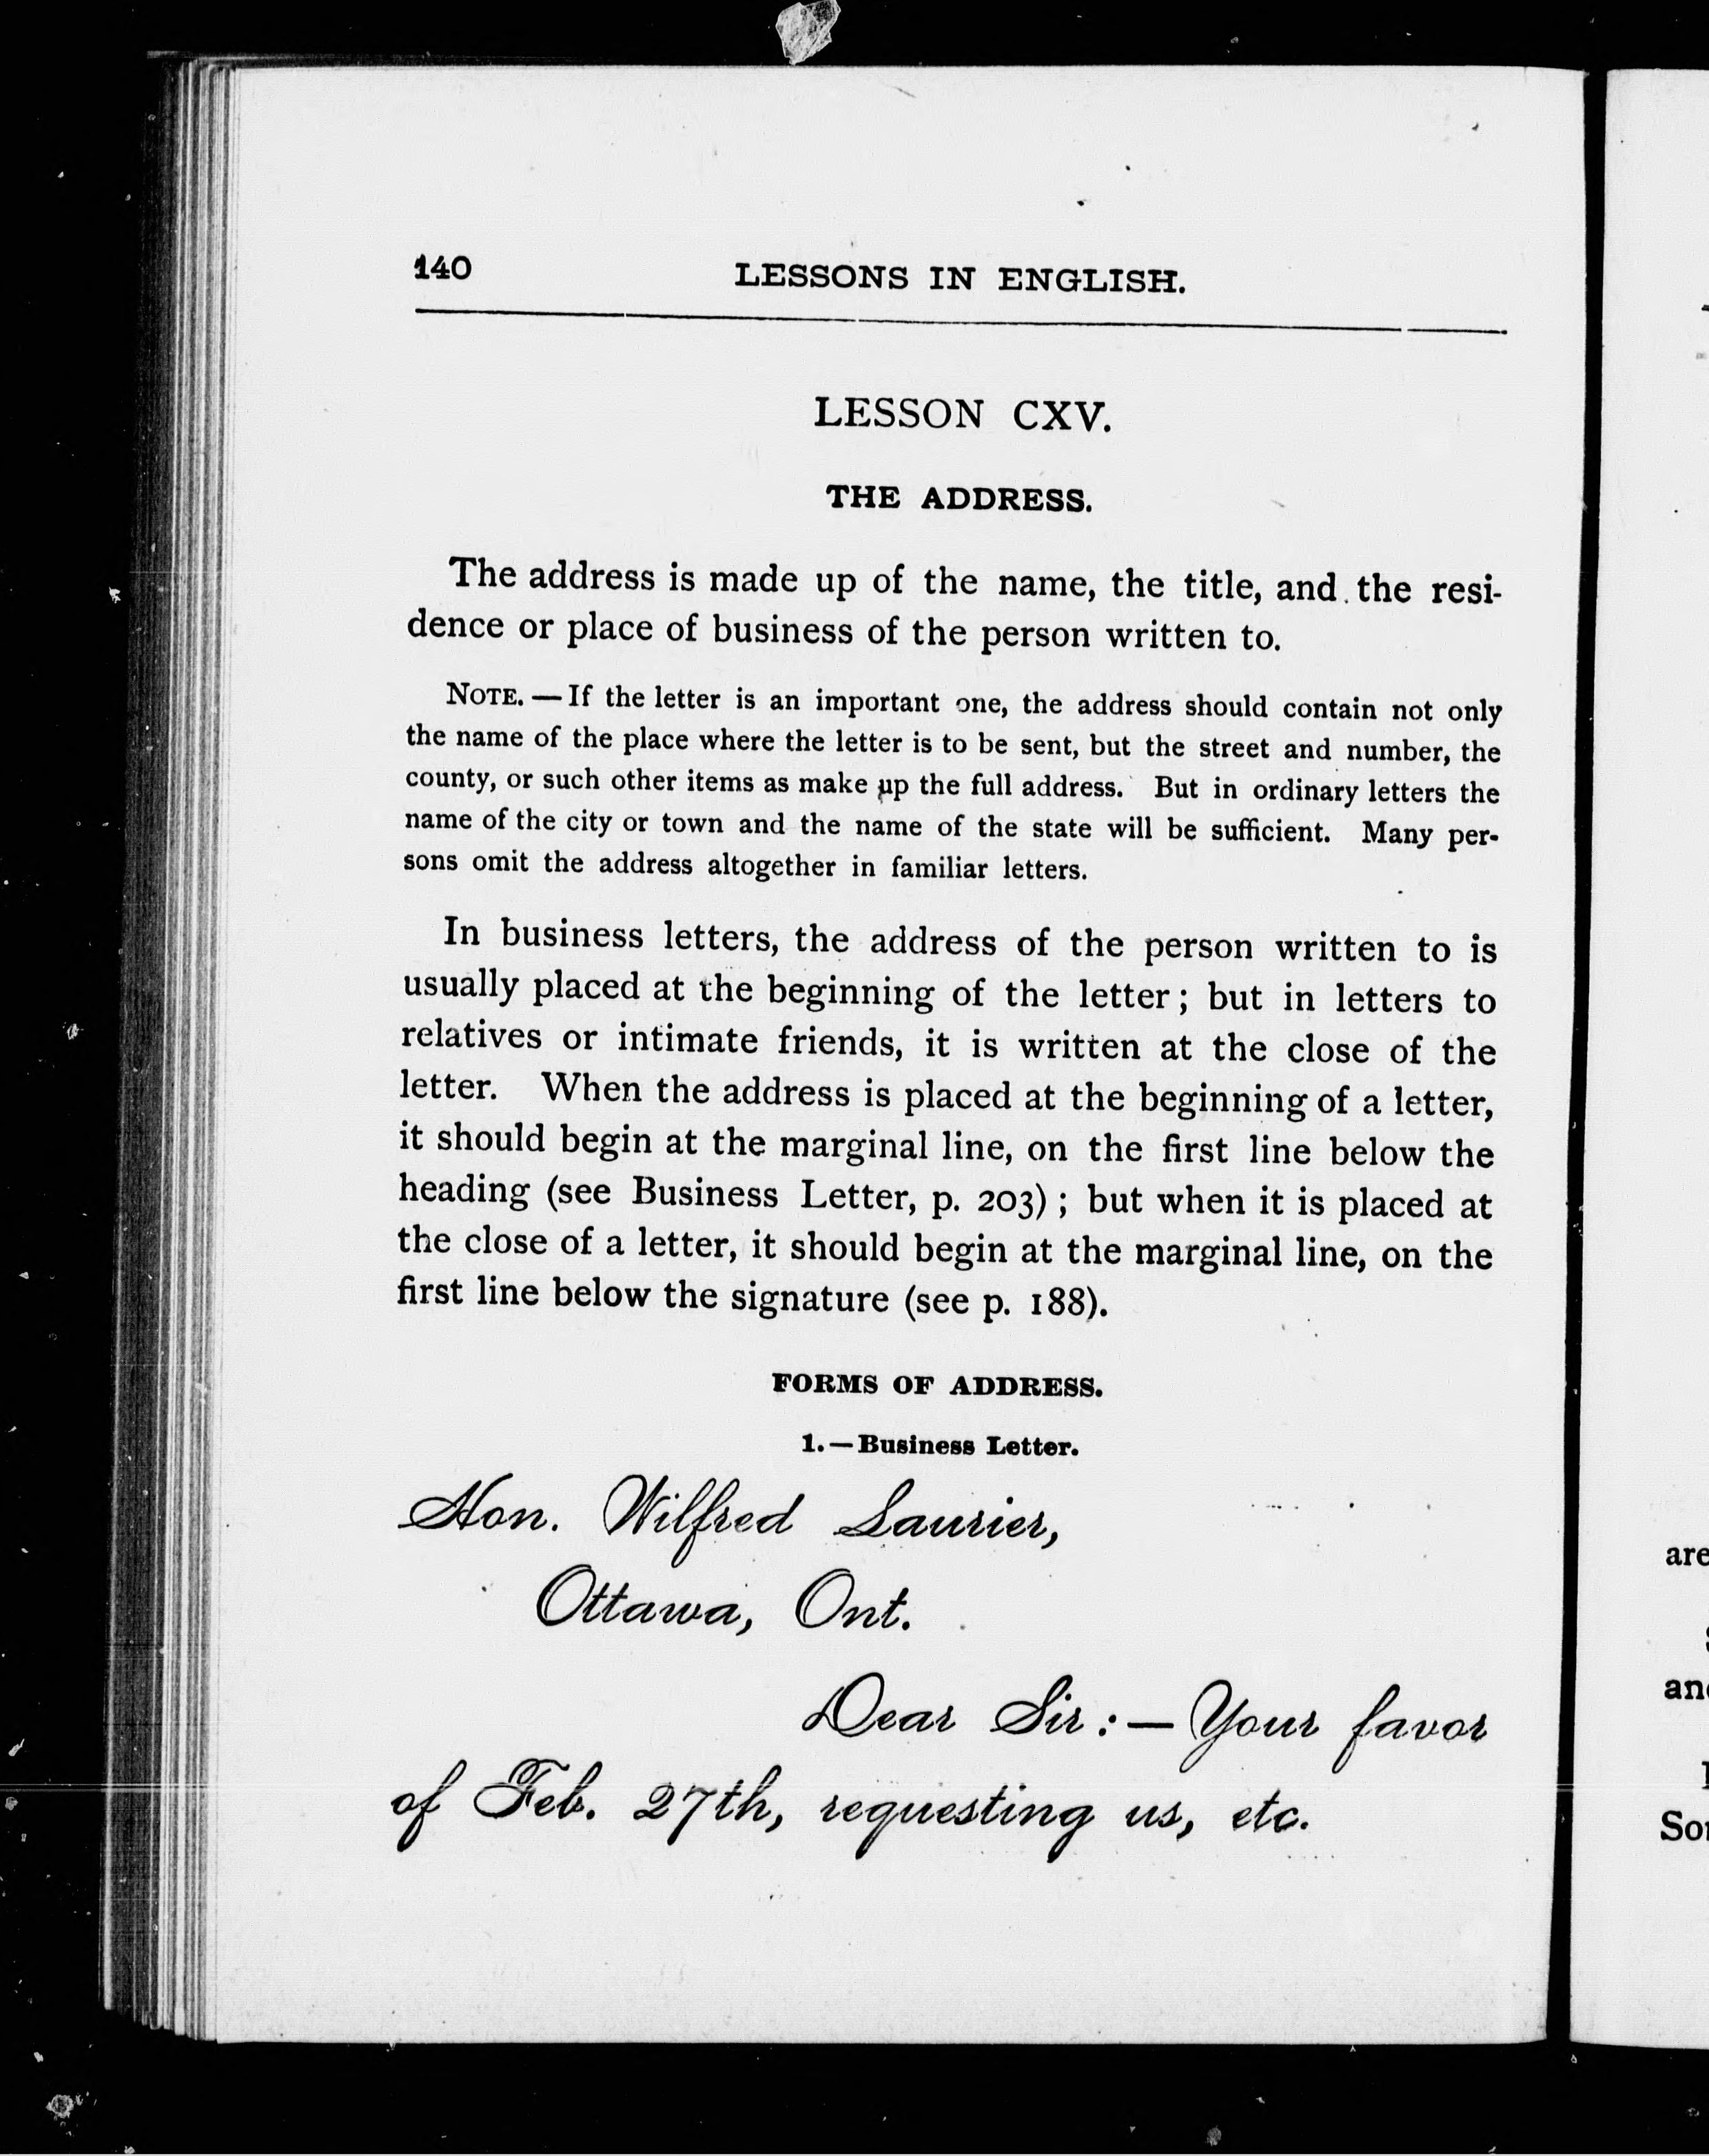 140 LESSONS IN ENGLISH.
LESSON CXV.
THE ADDRESS.
The address is made up of the name, the title, and the resi-
dence or place of business of the person written to.
NOTE. — If the letter is an important one, the address should contain not only
the name of the place where the letter is to be sent, but the street and number, the
county, or such other items as make up the full address. But in ordinary letters the
name of the city or town and the name of the state will be sufficient. Many per-
sons omit the address altogether in familiar letters.
In business letters, the address of the person written to is
usually placed at the beginning of the letter; but in letters to
relatives or intimate friends, it is written at the close of the
letter. When the address is placed at the beginning of a letter,
it should begin at the marginal line, on the first line below the
heading (see Business Letter, p. 203); but when it is placed at
the close of a letter, it should begin at the marginal line, on the
first line below the signature (see p. 188).
FORMS OF ADDRESS.
1.—Business Letter.
Hon. Wilfred Laurier,
Ottawa, Ont.
Dear Sir:— Your favor
of Feb. 27th, requesting us, etc.
are